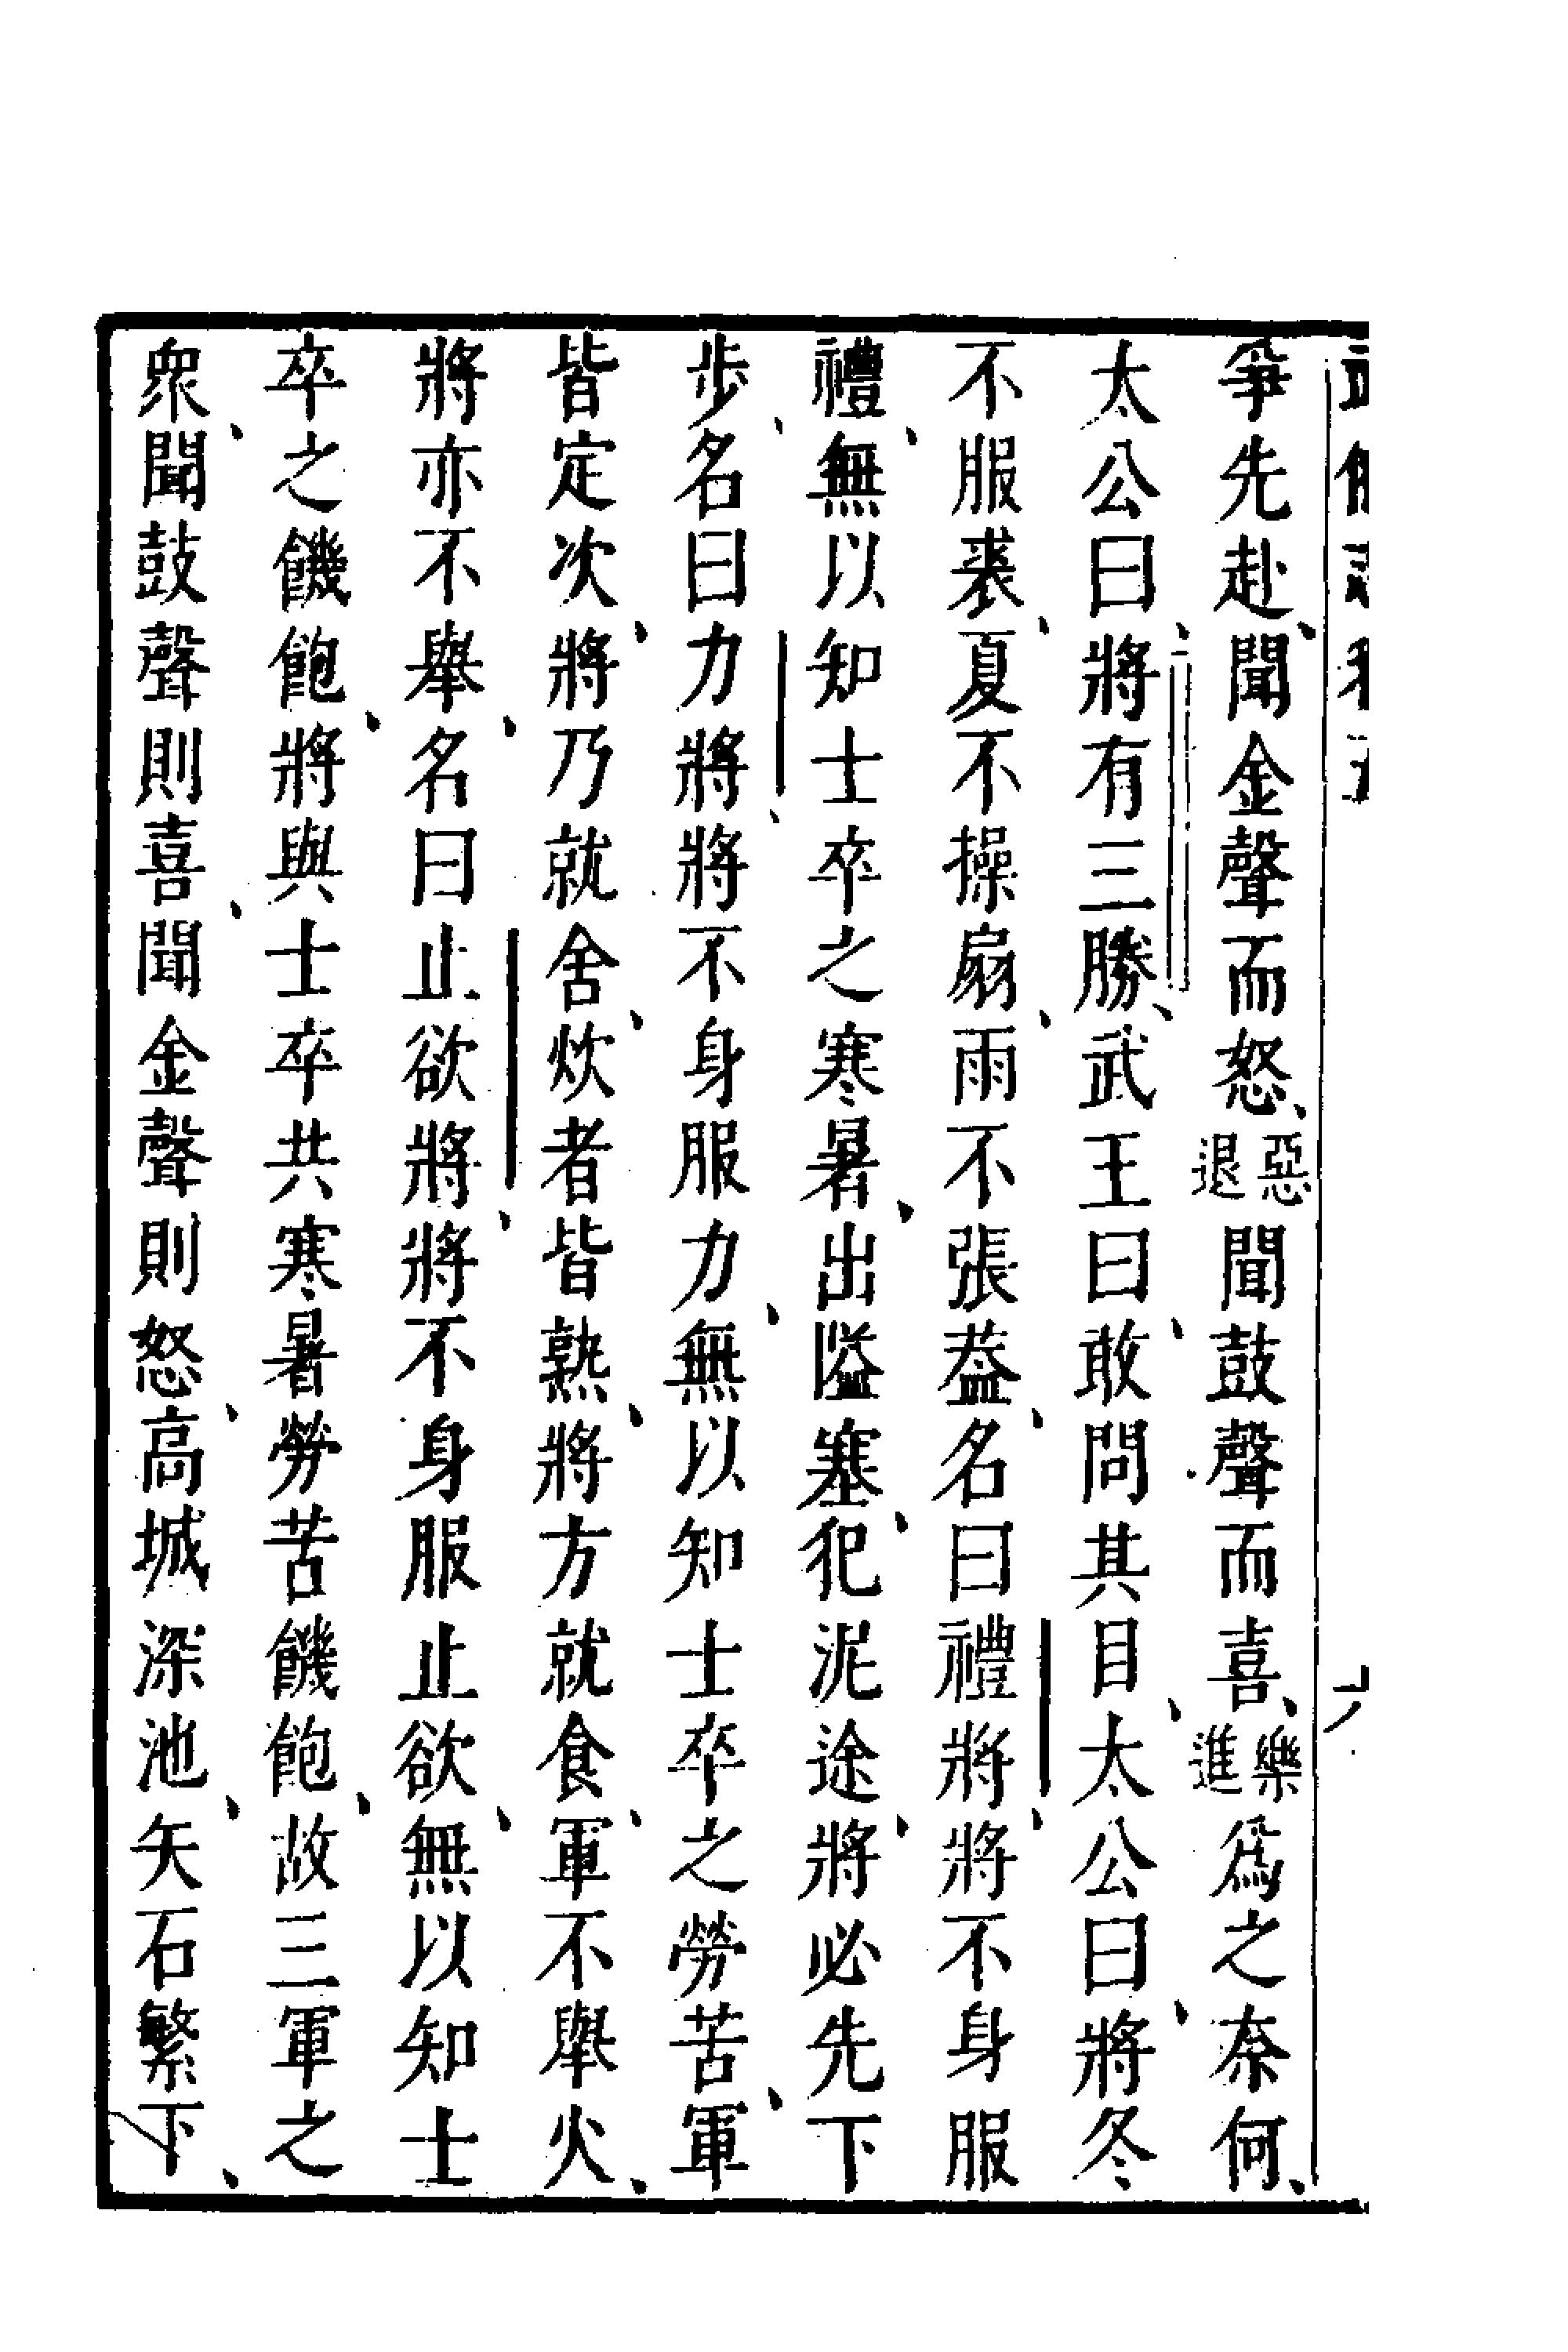 爭先赴聞金聲而怒惡退聞鼓聲而喜樂進爲之奈何
太公曰將有三勝武王曰敢問其目太公曰將冬
不服裘夏不操扇雨不張葢名曰禮將將不身服
禮無以知士卒之寒暑出隘塞犯泥途將必先下
步名曰力將將不身服力無以知士卒之勞苦軍
皆定次將乃就舍炊者皆熟將方就食軍不舉火
將亦不舉名曰止欲將將不身服止欲無以知士
卒之饑飽將與士卒共寒暑勞苦饑飽故三軍之
衆聞鼓聲則喜聞金聲則怒高城深池矢石繁下